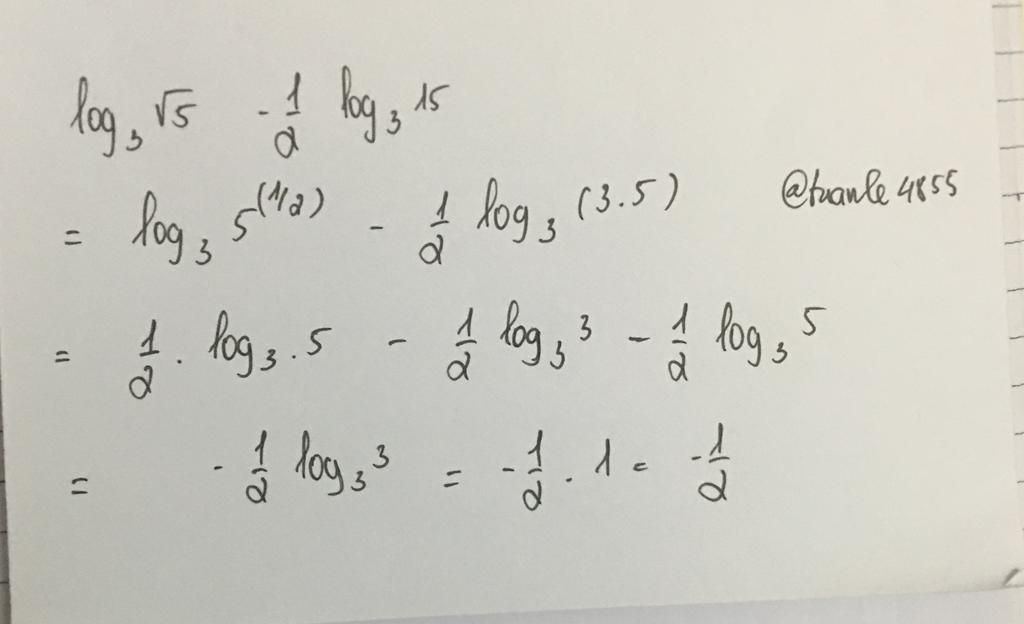 log₃ √5 - 1/2 log₃ 15
= log₃ 5^(1/2) - 1/2 log₃ (3.5) @tuanle4855
= 1/2 . log₃ . 5 - 1/2 log₃ 3 - 1/2 log₃ 5
= - 1/2 log₃ 3 = - 1/2 . 1 = - 1/2